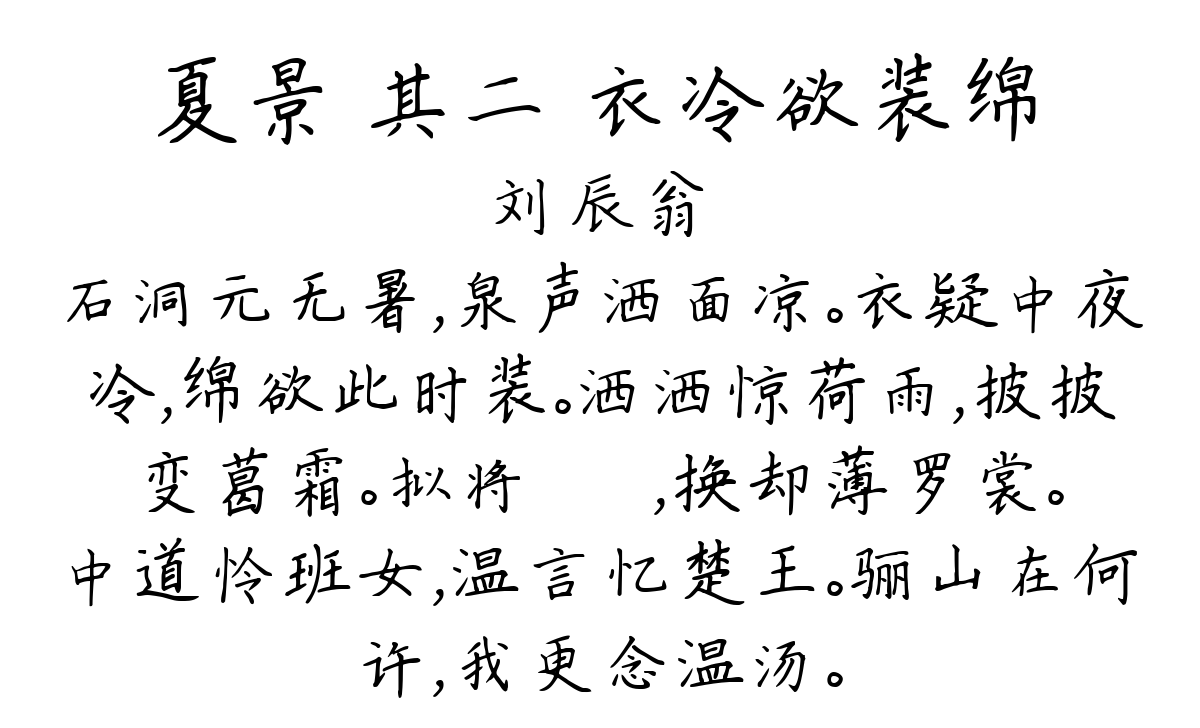 夏景 其二 衣冷欲装绵
刘辰翁
石洞元无暑,泉声洒面凉。衣疑中夜
冷,绵欲此时装。洒洒惊荷雨,披披
变葛霜。拟将  ,换却薄罗裳。
中道怜班女,温言忆楚王。骊山在何
许,我更念温汤。